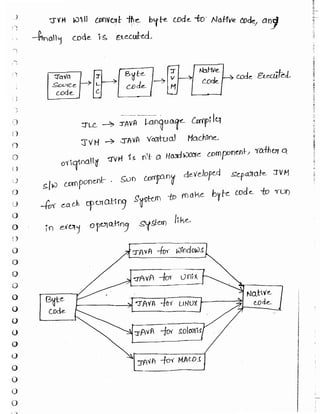 JVM will convert the byte code to Native code, and
finally code is executed.
Java Source code
J L C
Byte code
J V M
Native code
code Executed.
JLC → JAVA Language Compiler
JVM → JAVA Virtual Machine.
originally JVM is n't a Hardware component, rather a
s/w component. Sun company developed separate JVM
for each operating system to make byte code to run
in every operating system like.
JAVA for windows
JAVA for Unix
Byte code
JAVA for LINUX
Native code.
JAVA for solaris
JAVA for MACOS